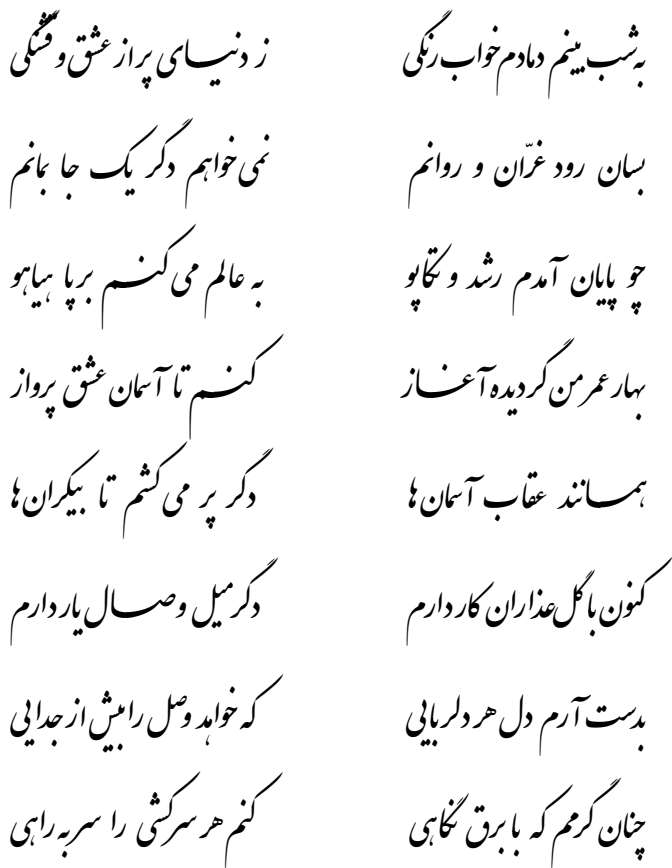 به شب بینم دمادم خواب رنگی ز دنیای پر از عشق و قشنگی
بسان رود غرّان و روانم نمی خواهم دگر یک جا بمانم
چو پایان آمدم رشد و تکاپو به عالم می کنم بر پا هیاهو
بهار عمر من گردیده آغاز کنم تا آسمان عشق پرواز
همانند عقاب آسمان ها دگر پر می کشم تا بیکران ها
کنون با گل عذاران کار دارم دگر میل وصال یار دارم
بدست آرم دل هر دلربایی که خواهد وصل را بیش از جدایی
چنان گرمم که با برق نگاهی کنم هر سرکشی را سر به راهی